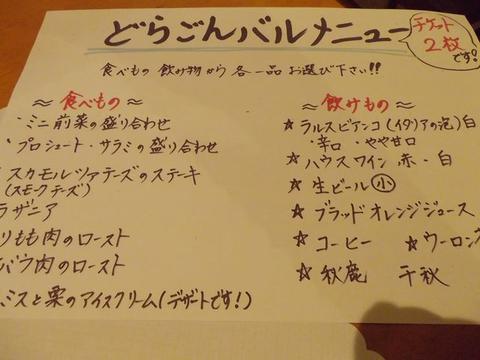 どらごんバルメニュー
チケット
2枚
です!
食べもの 飲み物から 各一品 お選び下さい!!
≈ 食べもの ≈
・ミニ前菜の盛り合わせ
・プロシュート・サラミの盛り合わせ
スカモルツァチーズのステーキ
(スモークチーズ)
ラザニア
りもも肉のロースト
バラ肉のロースト
ミスと栗のアイスクリーム(デザートです!)
≈ 飲けもの ≈
☆ ラルスビアンコ(イタリアの泡)白
・辛口 ・やや甘口
☆ ハウスワイン 赤・白
☆ 生ビール 小
☆ ブラッドオレンジジュース
☆ コーヒー ☆ ウーロン
☆ 秋鹿 千秋